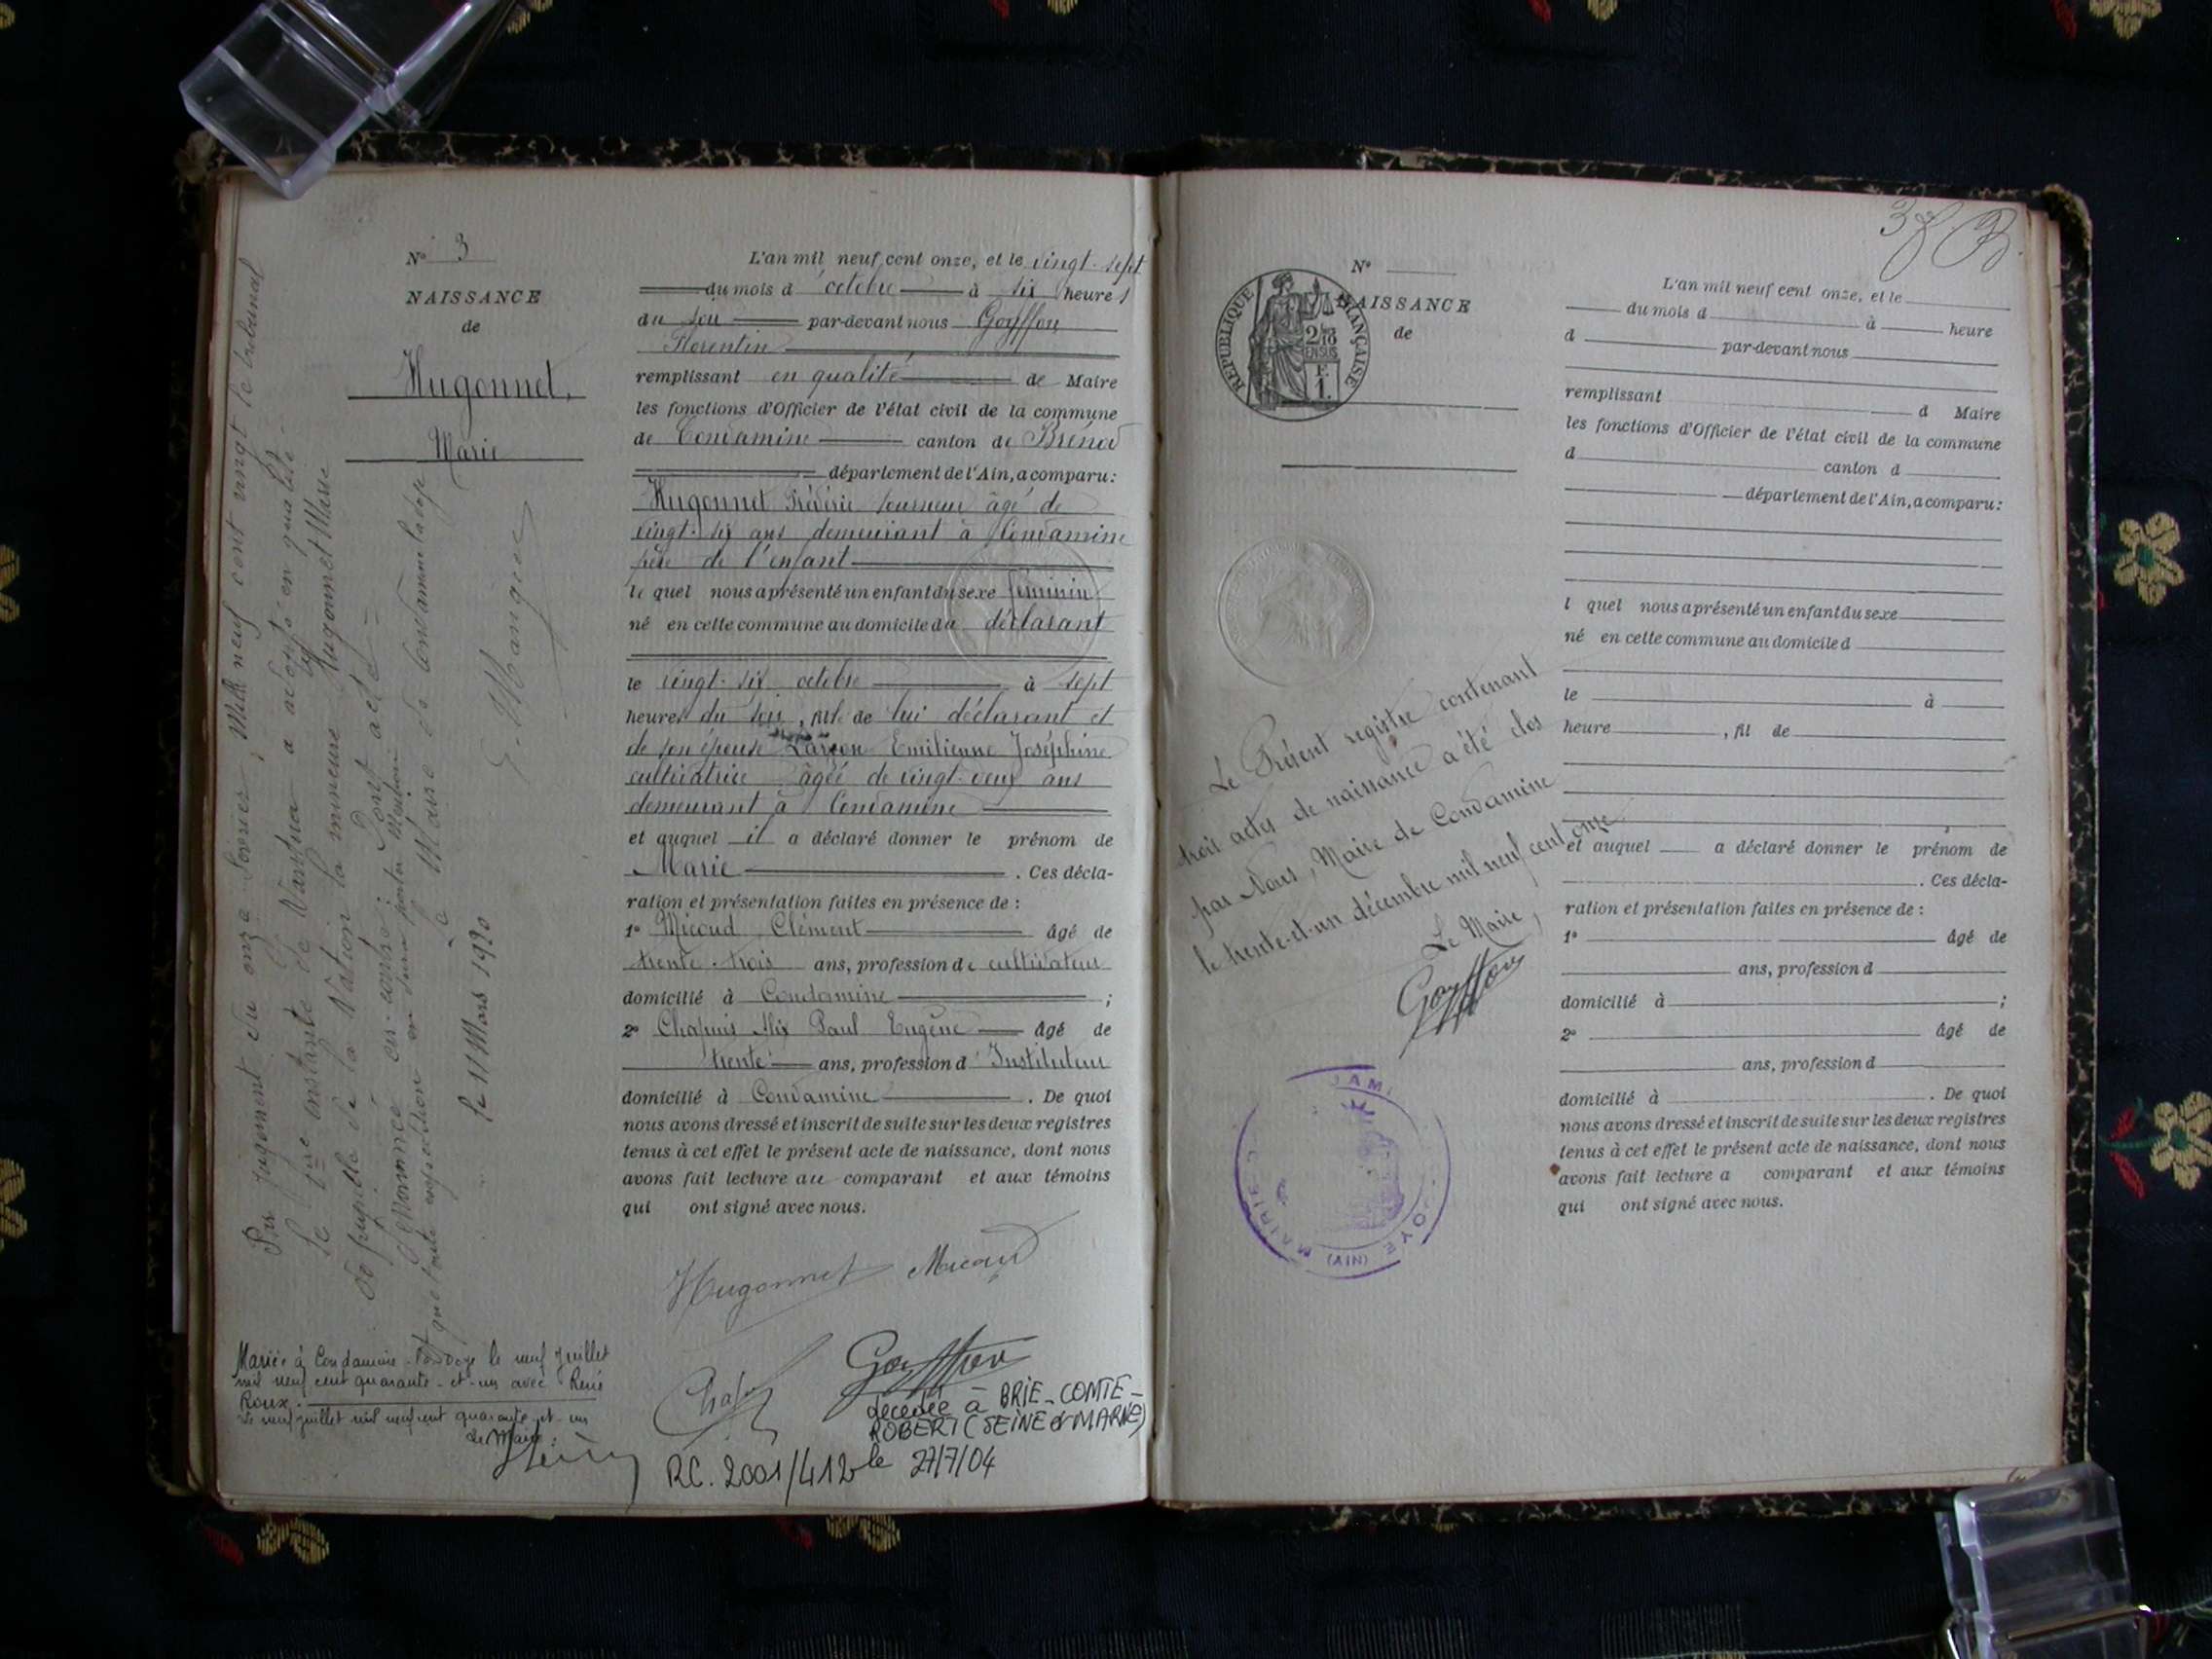 N° 3
NAISSANCE
de
Hugonnet,
Marie
Par jugement du onze Février, Mil neuf cent vingt le tribunal
de 1ère instance de Nantua a adopté en qualité
de pupille de la Nation la mineure Hugonnet Marie
dénommée ci-contre. Dont acte
que toute expédition en devra porter Mention
Le Maire de Condamine la doye
Le 11 Mars 1920
Mariée à Condamine-la-Doye le neuf juillet
mil neuf cent quarante-et-un avec René
Roux.
Le neuf juillet mil neuf cent quarante-et-un
Le Maire :
L'an mil neuf cent onze, et le vingt-sept
du mois d'octobre à six heures
du soir par-devant nous Goyffon
Florentin
remplissant en qualité de Maire
les fonctions d'Officier de l'état civil de la commune
de Condamine canton de Brénod
département de l'Ain, a comparu :
Hugonnet Frédéric tourneur âgé de
vingt-six ans demeurant à Condamine
père de l'enfant
le quel nous a présenté un enfant du sexe féminin
né en cette commune au domicile du déclarant
le vingt-six octobre à sept
heures du soir, fille de lui déclarant et
de son épouse Larçon Emilienne Joséphine
cultivatrice âgée de vingt-deux ans
demeurant à Condamine
et auquel il a déclaré donner le prénom de
Marie . Ces décla-
ration et présentation faites en présence de :
1° Micoud Clément âgé de
trente-trois ans, profession de cultivateur
domicilié à Condamine ;
2° Chapuis Alix Paul Eugène âgé de
trente ans, profession d'Instituteur
domicilié à Condamine . De quoi
nous avons dressé et inscrit de suite sur les deux registres
tenus à cet effet le présent acte de naissance, dont nous
avons fait lecture au comparant et aux témoins
qui ont signé avec nous.
Hugonnet Micoud
Goyffon
décédée à BRIE-COMTE-
ROBERT (SEINE et MARNE)
le 27/7/04
RC. 2001/412
3
N°
NAISSANCE
de
REPUBLIQUE FRANÇAISE
2/10
EN SUS
F.
1.
L'an mil neuf cent onze, et le
du mois d à heure
d par-devant nous
remplissant d Maire
les fonctions d'Officier de l'état civil de la commune
d canton d
département de l'Ain, a comparu :
l quel nous a présenté un enfant du sexe
né en cette commune au domicile d
le à
heure , fil de
et auquel a déclaré donner le prénom de
. Ces décla-
ration et présentation faites en présence de :
1° âgé de
ans, profession d
domicilié à ;
2° âgé de
ans, profession d
domicilié à . De quoi
nous avons dressé et inscrit de suite sur les deux registres
tenus à cet effet le présent acte de naissance, dont nous
avons fait lecture a comparant et aux témoins
qui ont signé avec nous.
Le Présent registre contenant
trois actes de naissance a été clos
par Nous, Maire de Condamine
le trente-et-un décembre mil neuf cent onze
Le Maire,
Goyffon
MAIRIE
(AIN)